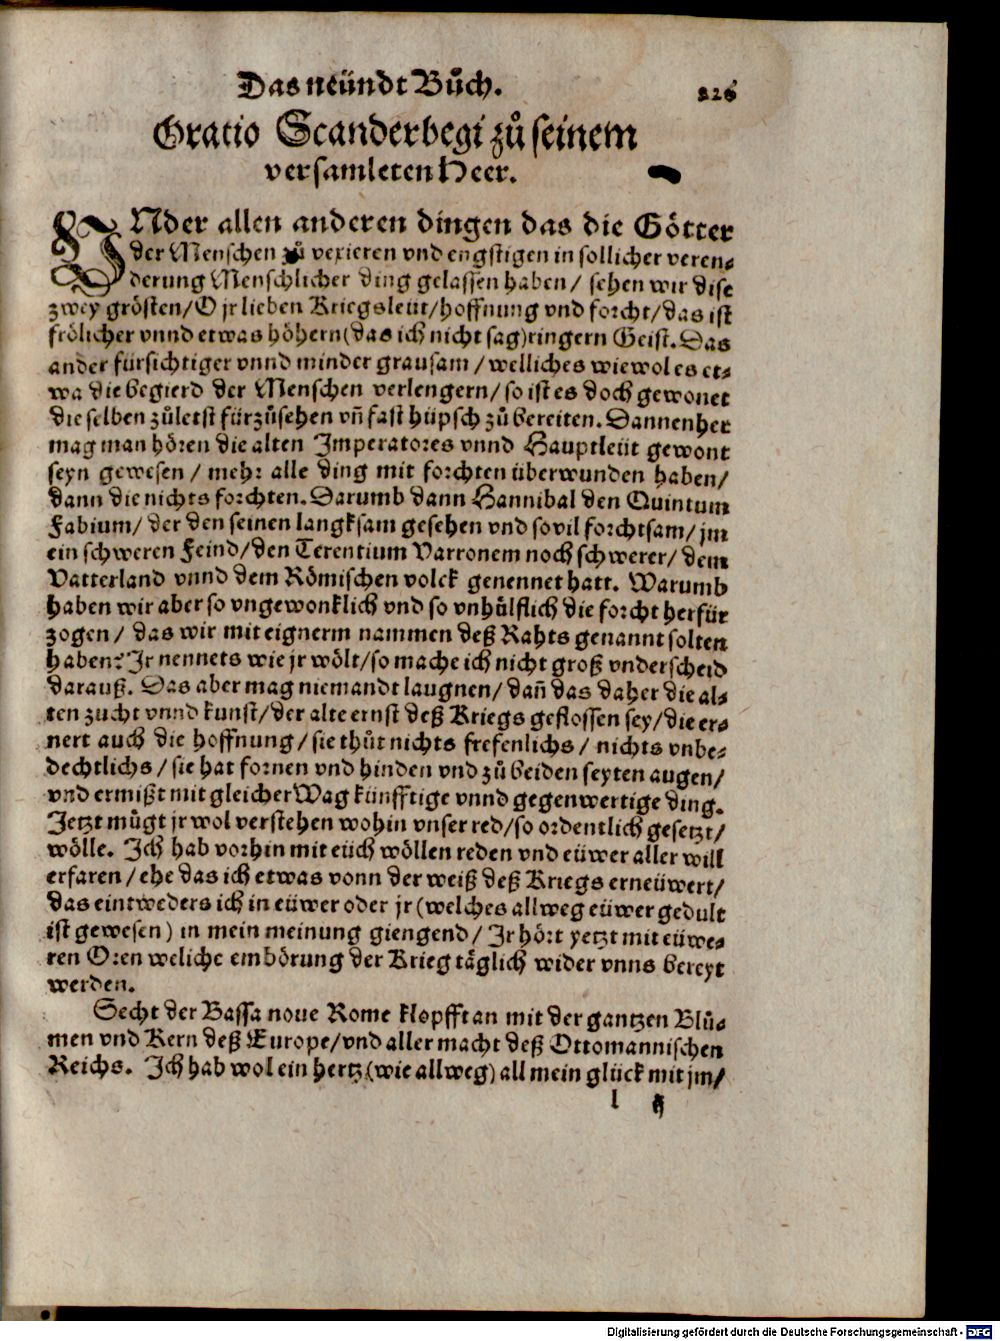 Das neündt Bůch.
226
Oratio Scanderbegi zů seinem
versamleten Heer.
VNder allen anderen dingen das die Götter
der Menschen zů vexieren vnd engstigen in sollicher veren⸗
derung Menschlicher ding gelassen haben / sehen wir dise
zwey grösten / O jr lieben Kriegsleüt / hoffnung vnd forcht / das ist
frölicher vnnd etwas höhern (das ich nicht sag) ringern Geist. Das
ander fürsichtiger vnnd minder grausam / welliches wiewol es et⸗
wa die begierd der Menschen verlengern / so ist es doch gewonet
die selben zůletst fürzůsehen vñ fast hüpsch zů bereiten. Dannenher
mag man hören die alten Imperatores vnnd Hauptleüt gewont
seyn gewesen / mehr alle ding mit forchten überwunden haben /
dann die nichts forchten. Darumb dann Hannibal den Quintum
Fabium / der den seinen langksam gesehen vnd so vil forchtsam / jm
ein schweren Feind / den Terentium Varronem noch schwerer / dem
Vatterland vnnd dem Römischen volck genennet hatt. Warumb
haben wir aber so vngewonklich vnd so vnhülflich die forcht herfür
zogen / das wir mit eignerm nammen deß Rahts genannt solten
haben? Ir nennets wie jr wölt / so mache ich nicht groß vnderscheid
darauß. Das aber mag niemandt laugnen / dañ das daher die al⸗
ten zucht vnnd kunst / der alte ernst deß Kriegs geflossen sey / die er⸗
nert auch die hoffnung / sie thůt nichts frefenlichs / nichts vnbe⸗
dechtlichs / sie hat fornen vnd hinden vnd zů beiden seyten augen /
vnd ermißt mit gleicher Wag künfftige vnnd gegenwertige ding.
Jetzt mügt jr wol verstehen wohin vnser red / so ordentlich gesetzt /
wölle. Ich hab vorhin mit eüch wöllen reden vnd eüwer aller will
erfaren / ehe das ich etwas vonn der weiß deß Kriegs erneüwert /
das eintweders ich in eüwer oder jr (welches allweg eüwer gedult
ist gewesen) in mein meinung giengend / Ir hört yetzt mit eüwe⸗
ren Oren weliche embörung der Krieg täglich wider vnns bereyt
werden.
Secht der Bassa noue Rome klopfft an mit der gantzen Blů⸗
men vnd Kern deß Europe / vnd aller macht deß Ottomannischen
Reichs. Ich hab wol ein hertz (wie allweg) all mein glück mit jm /
l
Digitalisierung gefördert durch die Deutsche Forschungsgemeinschaft - DFG